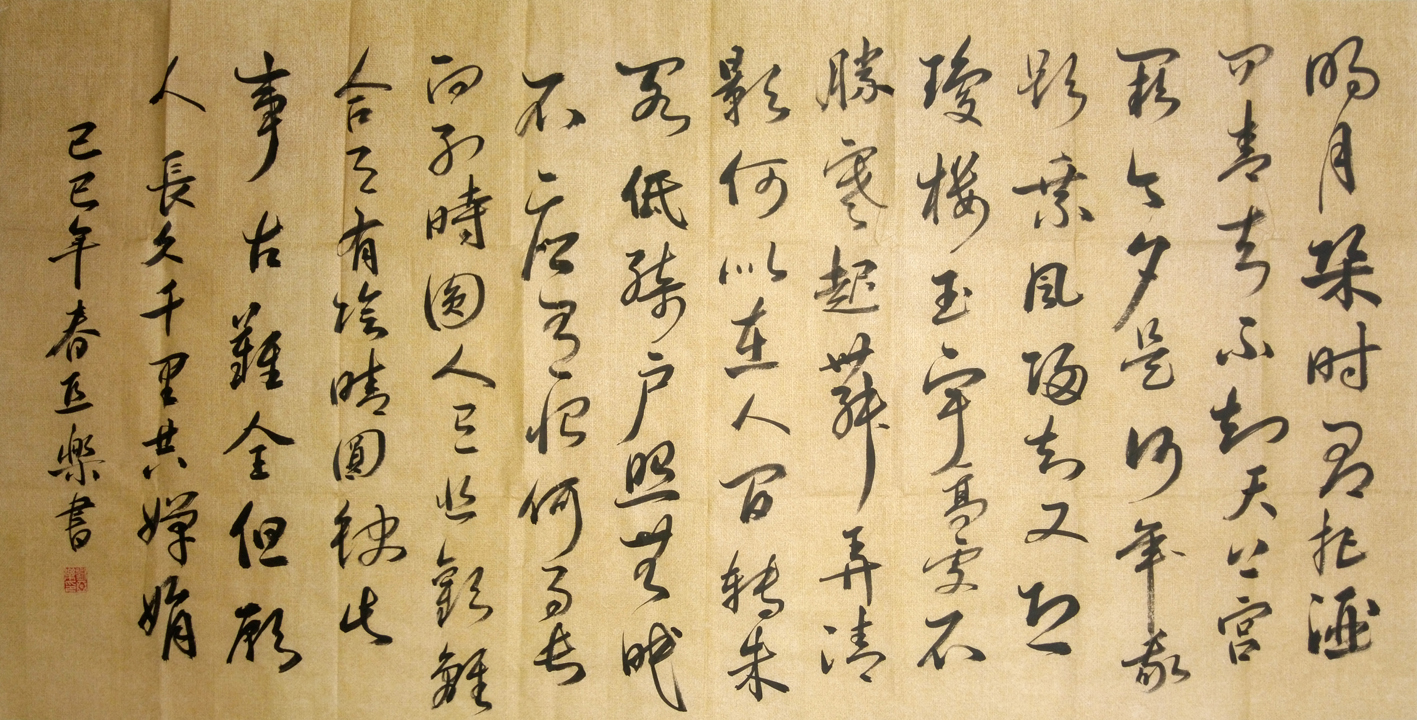 明月幾时有把酒
问青天不知天上宫
阙今夕是何年我
欲乘風歸去又恐
瓊樓玉宇高處不
勝寒起舞弄清
影何似在人间转朱
阁低綺户照無眠
不应有恨何事长
向别時圆人有悲歡離
合月有陰晴圓缺此
事古難全但願
人長久千里共嬋娟
己巳年春樂書